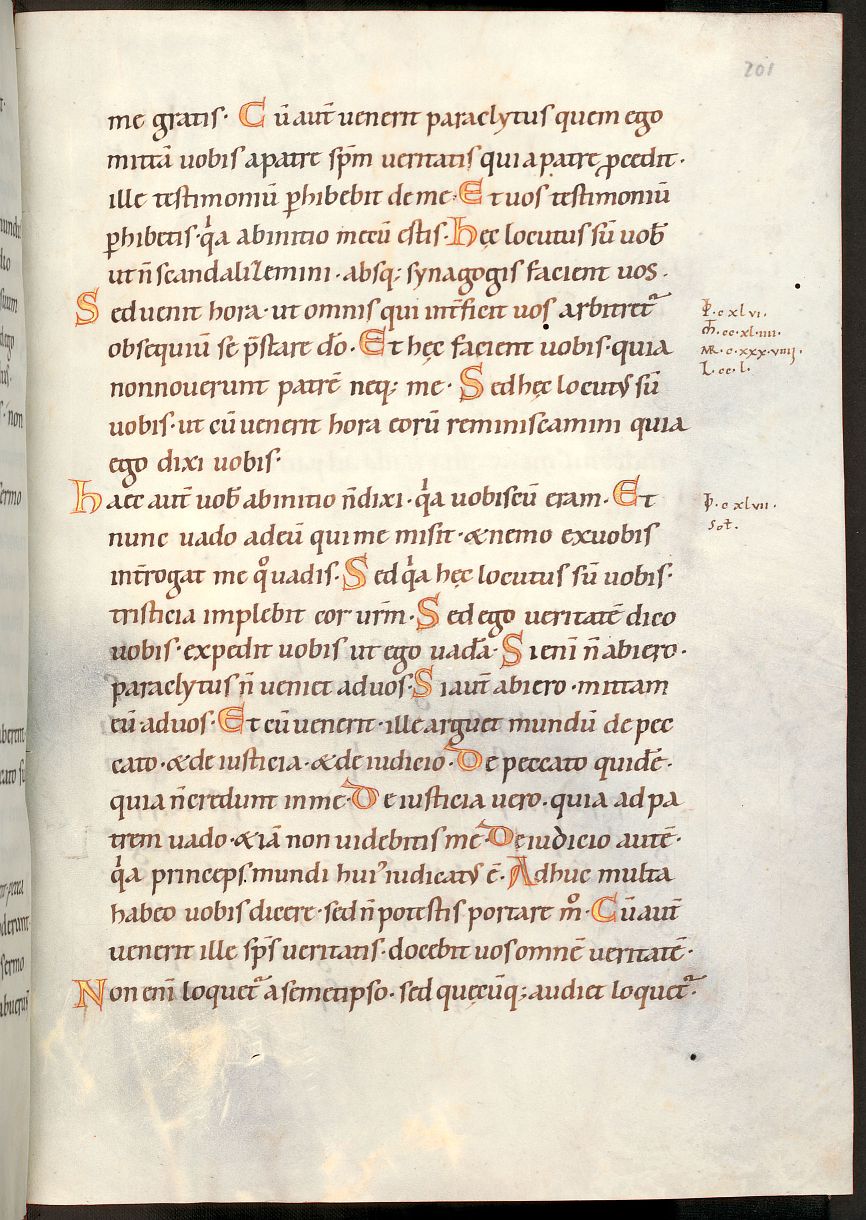 201
me gratis· Cū aut̄ uenerit paraclytus quem ego
mittā uobis a patre sp̄m ueritatis qui a patre ꝓcedit·
ille testimoniū ꝑhibebit de me· Et uos testimoniū
ꝑhibetis· qͥa ab initio mecū estis· hęc locutus sū uob̄
ut n̄ scandalizemini· absq; synagogis facient uos·
Sed uenit hora· ut omnis qui int̄ficit uos arbitret᷑
obsequiū se p̄stare dō· Et hęc facient uobis· quia
non nouerunt patrē neq; me· Sed hęc locutus sū
uobis· ut cū uenerit hora eorū reminiscamini quia
ego dixi uobis·
haec aut̄ uob̄ ab initio n̄ dixi· qͥa uobiscū eram· Et
nunc uado ad eū qui me misit· & nemo ex uobis
int̄rogat me qͦ uadis· Sed qͥa hęc locutus sū uobis·
tristicia implebit cor ur̄m· Sed ego ueritatē dico
uobis· expedit uobis ut ego uadā· Si eni n̄ abiero·
paraclytus n̄ ueniet ad uos· Si aut̄ abiero· mittam
eū ad uos· Et cū uenerit· ille arguet mundū de pec
cato· & de iusticia· & de iudicio· De peccato quidē·
quia n̄ credunt in me· De iusticia uero· quia ad pa
trem uado· & iā non uidebitis me· De iudicio autē·
qͥa princeps mundi hui᾽ iudicatus ē· Adhuc multa
habeo uobis dicere· sed n̄ potestis portare mͦ· Cū aut̄
uenerit ille sp̄s ueritatis· docebit uos omnē ueritatē·
Non eni loquet᷑ a semetipso· sed quęcūq; audiet loquet᷑·
·c·xlvi·
·cc·xl·iiii·
MR·c·xxx·viiii·
L·cc·l·
·c·xlvii·
Sot̄·